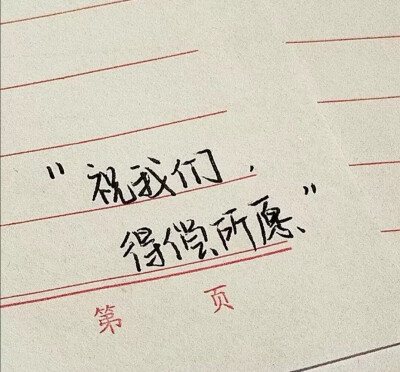 “祝我们，
得偿所愿”
第 页